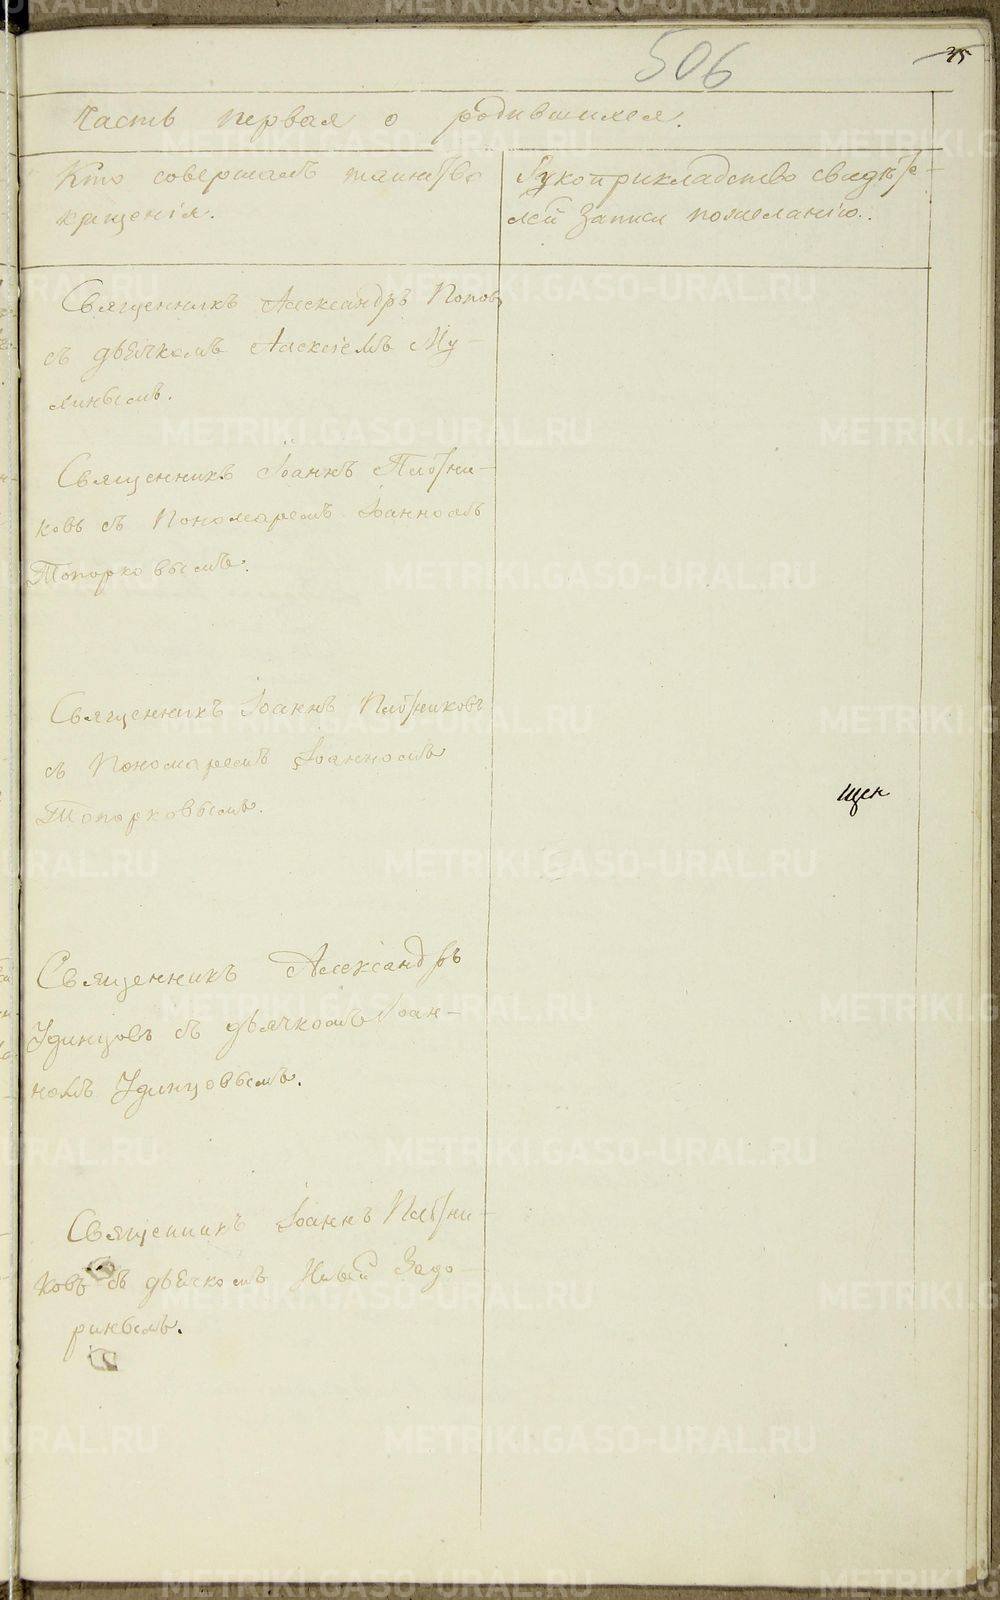 506
35
Часть первая о родившихся.
Кто совершалъ таинство
крещенія.
Рукоприкладство свидѣте-
лей записи по желанію.
Священникъ Александръ Попов
съ дьячкомъ Алексіемъ Му-
линымъ.
Священникъ Іоаннъ Плотни-
ковъ съ Пономаремъ Іоанномъ
Топорковымъ.
Священникъ Іоаннъ Плотниковъ
съ Пономаремъ Іоанномъ
Топорковымъ.
щен
Священникъ Александръ
Удинцовъ съ дьячкомъ Іоан-
номъ Удинцовымъ.
Священникъ Іоаннъ Плотни-
ковъ съ дьячкомъ Ильей Задо-
ринымъ.
METRIKI.GASO-URAL.RU